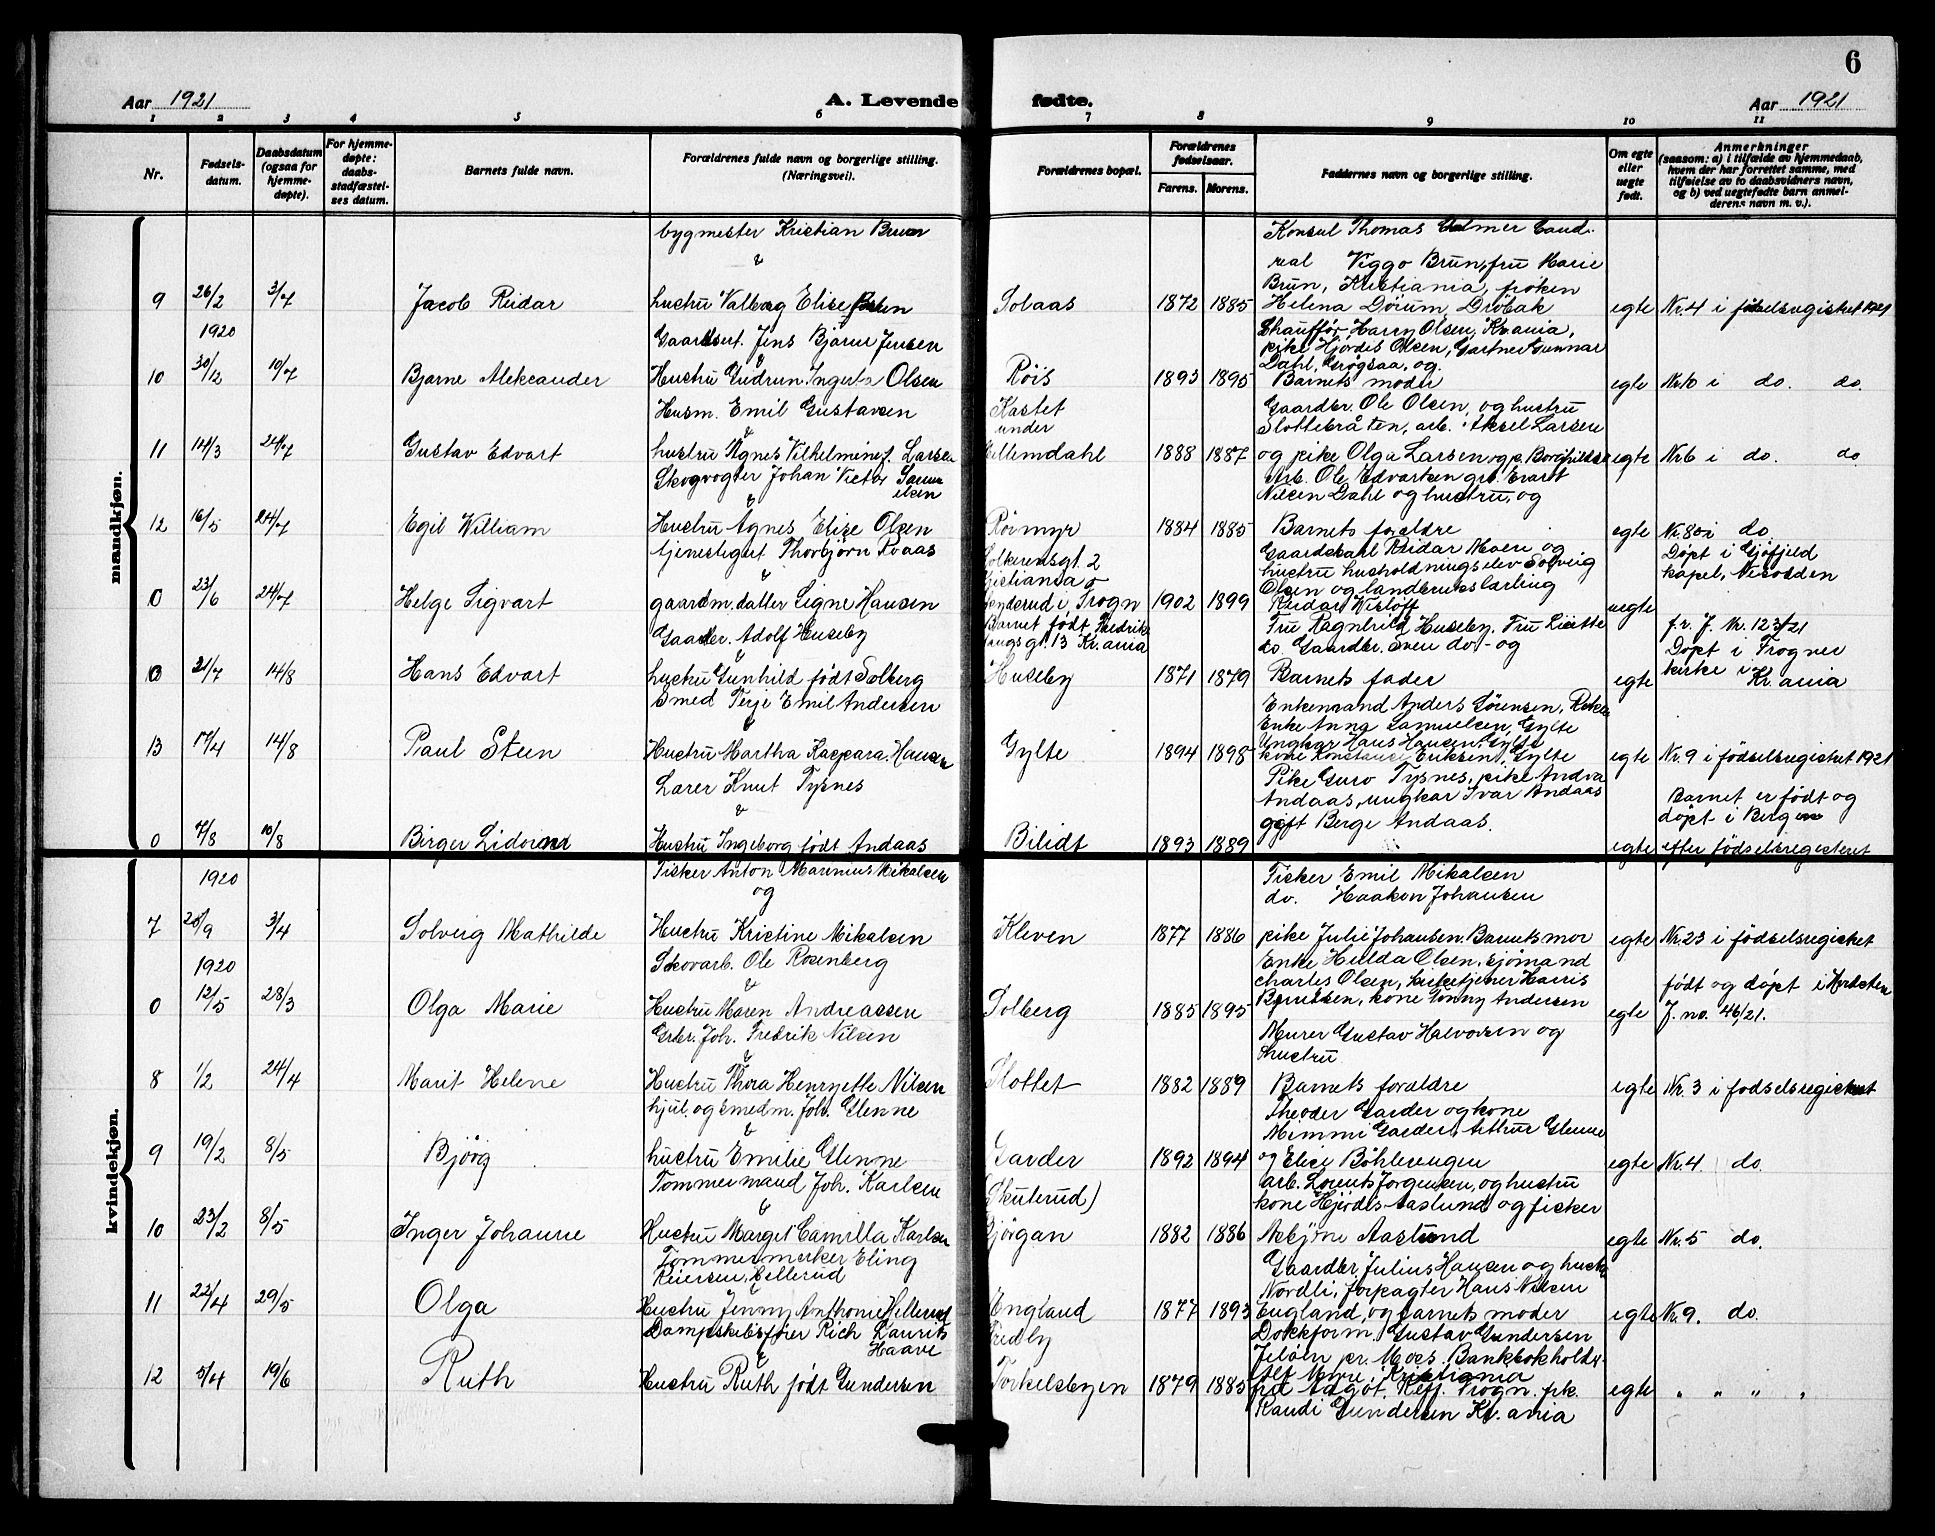 6
Aar 1921
A. Levende fødte.
Aar 1921
1 2 3 4 5 6 7 8 9 10 11
Nr.
Fødsels-
datum.
Daabsdatum
(ogsaa for
hjemme-
døpte).
For hjemme-
døpte:
daabs-
stadfæstel-
ses datum.
Barnets fulde navn.
Forældrenes fulde navn og borgerlige stilling.
(Næringsvei).
Forældrenes bopæl.
Forældrenes
fødselsaar.
Farens. Morens.
Faddernes navn og borgerlige stilling.
Om egte
eller
uegte
født.
Anmerkninger
(saasom: a) i tilfælde av hjemmedaab,
hvem der har forrettet samme, med
tilføielse av to daabsvidners navn,
og b) ved uegtefødte barn anmel-
derens navn m. v.).
mandkjøn.
bygmester Kristian Brun
&
hustru Valborg Elise
9 26/2 3/7 Jacob Reidar
Solaas 1872 1885
Konsul Thomas Cand.
real Viggo Brun, fru Marie
Brun, Kristiania, frøken
Helena Dørum, Drøbak
egte Nr. 4 i fødselsregistret 1921
1920
Gaardbest. Jens Bjarne Jensen
&
10 30/12 10/7 Bjarne Aleksander
Hustru Gudrun Olsen
Røis 1893 1895
Chauffør Harry Olsen, Kr.ania,
pike Hjørdis Olsen, Gartner Gunnar
Dahl, Grøgsaa, og
Barnets moder
egte Nr. 10 i do. do.
Husm. Emil Gustavsen
&
11 14/3 24/7 Gustav Edvart
hustru Agnes Vilhelmine f. Larsen
Kastet
under
Hellemdahl 1888 1887
Gaardbr. Ole Olsen, og hustru
Slottebråten, arb. Aksel Larsen
og pike Olga Larsen og p. Borghild
egte Nr. 6 i do. do.
Skogvogter Johan Victor Samu
elsen
&
12 16/5 24/7 Egil William
Hustru Agnes Elise Olsen
Rørmyr 1884 1885
Arb. Ole Edvartsen grb. Evart
Nilsen Dahl og hustru, og
Barnets forældre
egte Nr. 80 i do.
tjenestegut Thorbjørn Raas
&
0 23/6 24/7 Helge Sigvart
gaardm. datter Signe Hansen
gt. 2
Kristiania
i Frogn 1902 1899
Gaardskarl Reidar Moen og
hustru husholdningselev Solveig
Olsen og
Reidar Wisløff
uegte
Døpt i Gjøfjeld
kapel, Nesodden
Gaardbr. Adolf Huseby
&
0 21/7 14/8 Hans Edvart
hustru Gunhild født Solberg
Barnet født Fredrik
gt. 13 Kr.ania
Huseby 1871 1879
Fru Ragnhild Huseby. Fru Lisette
do. Gaardbr. Sven do - og
Barnets fader
egte
f. r. J. Nr. 123/21
Døpt i Frogner
kirke i Kr.ania
Smed Terje Emil Andersen
&
13 17/4 14/8 Paul Steen
Hustru Martha Kaspara Hansen
Gylte 1894 1898
Enkemand Anders Sørensen,
Enke Anna Samuelsen, Gylte
Ungkar Hans Hansen, Gylte
kone Konstance Eriksen, Gylte
egte Nr. 9 i fødselsregistret 1921
Lærer Knut Tysnes
&
0 7/8 10/8 Birger
Hustru Ingeborg født Andaas
Bilidt 1893 1889
Pike Guro Tysnes, pike Andva
Andaas, ungkar Ivar Andaas
gift Berge Andaas.
egte
Barnet er født og
døpt i Bergen
efter fødselsregisteret
kvindekjøn.
1920
Fisker Anton Marinius Mikalsen
og
7 20/9 3/4 Solveig Mathilde
Hustru Kristine Mikalsen
Kleven 1877 1886
Fisker Emil Mikalsen
do. Haakon Johansen
pike Julie Johansen. Barnets mor
egte Nr. 23 i fødselsregistret
1920
Skovarb. Ole Rosenberg
&
0 12/5 28/3 Olga Marie
Hustru Maren Andreassen
Solberg 1885 1895
Enke Hulda Olsen, sjømand
Charles Olsen, kirketjener Harris
Berntsen, kone Jonny Andersen
egte
født og døpt i
J. no. 46/21.
Grbr. Joh. Fredrik Nilsen
&
8 1/2 24/4 Marit Helene
Hustru Thora Henryette Nilsen
Slottet 1882 1889
Murer Gustav Halvorsen og
hustru
Barnets forældre
egte Nr. 3 i fødselsregistret
hjul. og smedm. Joh. Glenne
&
9 19/2 8/5 Bjørg
hustru Emilie Glenne
Garder 1892 1894
Theodor Garder og kone
Mimmi Garder, Arthur Glenne
og Elise Bøhlerengen
egte Nr. 4 do.
Tømmermand Joh. Karlsen
&
10 23/2 8/5 Inger Johanne
Hustru Margit Camilla Karlsen
(Skuterud)
Bjørgan 1882 1886
arb. Lorents Jørgensen, og hustru
kone Hjørdis Aaslund og fisker
Asbjørn Aaslund
egte Nr. 5 do.
Tømmermerker Eling
Reiersen, Hellerud
11 22/4 29/5 Olga
Hustru Jenny Anthonie Hellerud
England 1877 1893
Gaardbr. Julius Hansen og hustru
Nordli, forpagter Hans Nilsen
England, og barnets moder
egte Nr. 9. do.
Dampskibsfører Rich Laurits
Haave
&
12 5/4 19/6 Ruth
Hustru Ruth født Gundersen
Torkelsbyen 1879 1885
Dokkform. Gustav Gundersen
Jeløen pr. Moss. Bankbokhold.
Alf Kristiania
Frogn. pk.
Randi Gundersen Kr.ania
egte " " " "